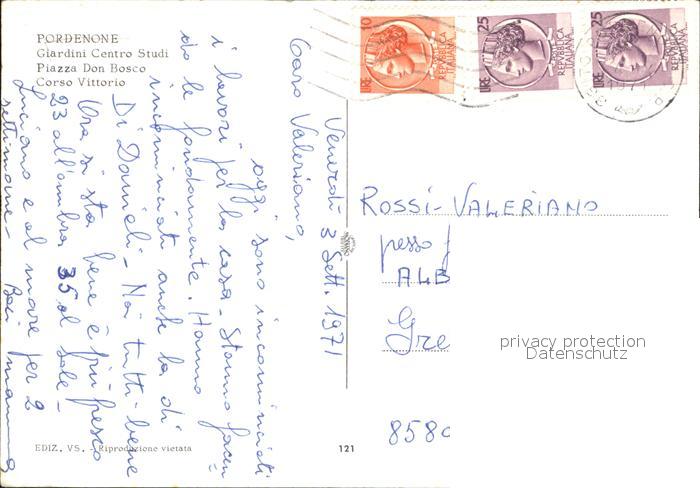 PORDENONE
Giardini Centro Studi
Piazza Don Bosco
Corso Vittorio
10 LIRE
REPVBBLICA
ITALIANA
25 LIRE
REPVBBLICA
ITALIANA
25 LIRE
REPVBBLICA
ITALIANA
Venerdì 3 Sett. 1971
Caro Valeriano,
oggi sono incominciati
i lavori per la casa - Stanno facen
do le fondamenta. Hanno
incominciati anche la di
Di Daniel - Noi tutti bene
Ora si sta bene è più fresco
23 all'ombra 35 al sole -
Luciano e al mare per 2
settimane - Baci mamma
ROSSI - VALERIANO
presso
ALB
Gre
8580
privacy protection
Datenschutz
EDIZ. VS. - Riproduzione vietata
121